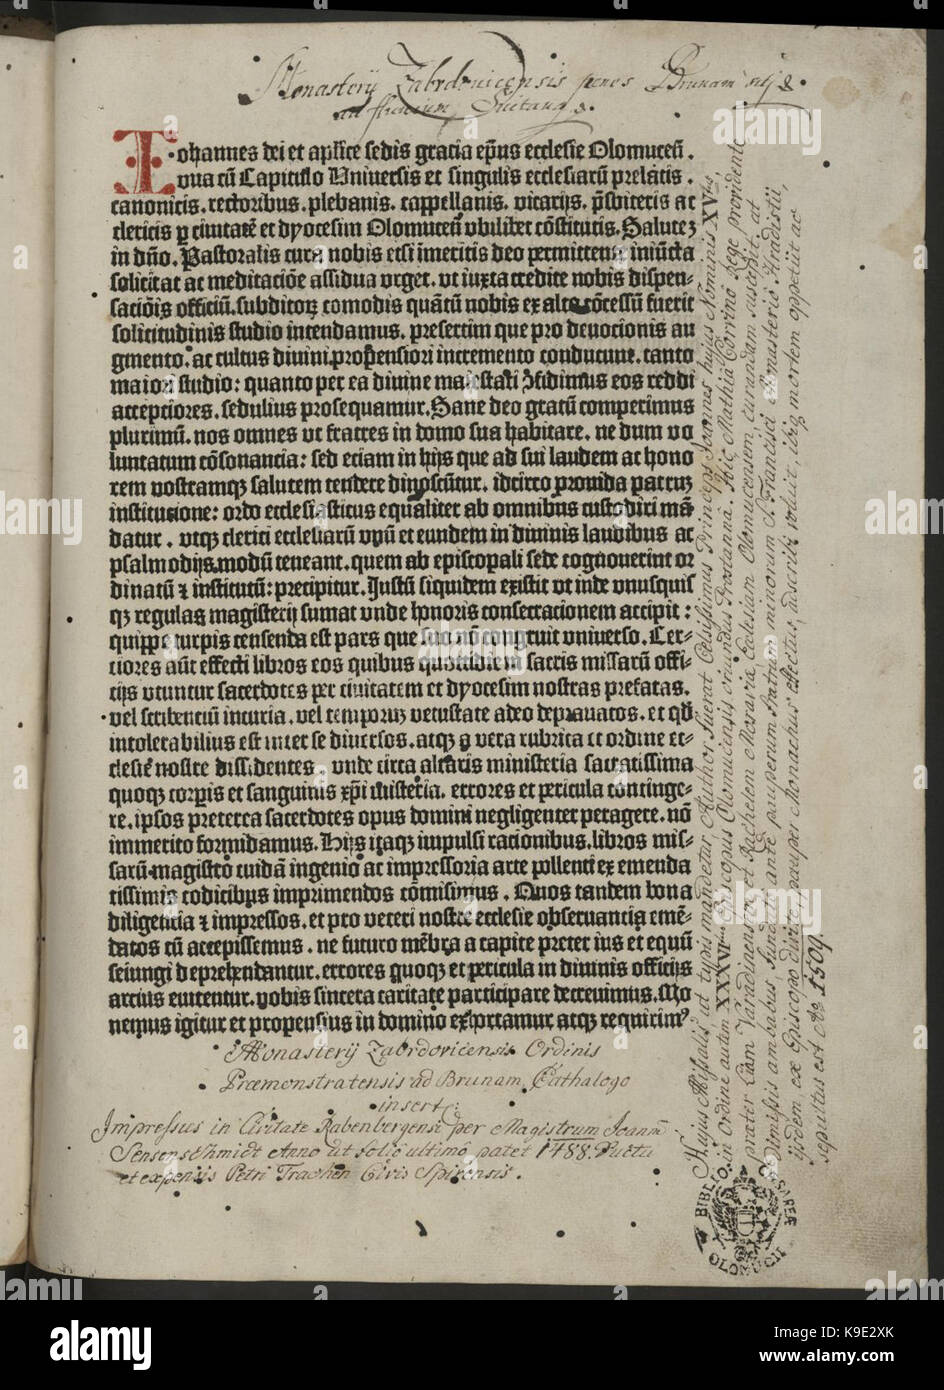 Monasterij Zabrdovicensis penes Brunam sitj
Iohannes dei et aplice sedis gracia ep̄us ecclesie Olomuceñ.
vua cū Capittlo Uniuersis et singulis ecclesiarū prelatis.
canonicis. rectoribus. plebanis. cappellanis. vicarijs. p̄sbiteris ac
clericis ꝑ ciuitatē et dyocesim Olomuceñ vbilibet cōstitutis. Salutez
in dn̄o. Pastoralis cura nobis etsi īmeritis deo permittente iniūcta
solicitat ac meditaciōe assidua vrget. vt iuxta credite nobis dispen-
saciōis officiū. subditoꝝ comodis quātū nobis ex alto cōcessū fuerit
solicitudinis studio intendamus. presertim que pro deuocionis au
gmento. ac cultus diuini propensiori incremento conducunt. tanto
maiori studio: quanto per ea diuine maiestati ꝯfidimus eos reddi
acceptiores. sedulius prosequamur. Sane deo gratū comperimus
plurimū. nos omnes vt fratres in domo sua habitare. ne dum vo
luntatum cōsonancia: sed eciam in hijs que ad sui laudem ac hono
rem nostramqꝫ salutem tendere dinoscūtur. idcirco prouida patruz
institucione: ordo ecclesiasticus equaliter ab omnibus custodiri mā
datur. vtqꝫ clerici ecclesiarū vnū et eundem in diuinis laudibus ac
psalmodijs modū teneant. quem ab episcopali sede cognouerint or
dinatū ⁊ institutū: precipitur. Justū siquidem existit vt inde vnusquis
qꝫ regulas magisterij sumat vnde honoris consecracionem accipit:
quippe turpis censenda est pars que suo nō congruit vniuerso. Cer-
ciores aūt effecti libros eos quibus quottidie in sacris missarū offi-
cijs vtuntur sacerdotes per ciuitatem et dyocesim nostras prefatas.
vel scribenciū incuria. vel temporuz vetustate adeo deprauatos. et qd̄
intolerabilius est inter se diuersos. atqꝫ a vera rubrica et ordine ec-
clesie nostre dissidentes. vnde circa altaris ministeria sacratissima
quoqꝫ corpis et sanguinis xp̄i misteria. errores et pericula continge-
re. ipsos preterea sacerdotes opus domini negligenter peragere. nō
immerito formidamus. Hijs itaqꝫ impulsi racionibus. libros mis-
sarū magistro cuidā ingenio ac impressoria arte pollenti ex emenda
tissimis codicibus imprimendos cōmisimus. Quos tandem bona
diligencia ⁊ impressos. et pro veteri nostre ecclesie obseruancia emē-
datos cū accepissemus. ne futuro mēbra a capite preter ius et equū
seiungi deprehendantur. errores quoqꝫ et pericula in diuinis officijs
arcius euitentur. vobis sincera caritate participare decreuimus. Mo
nemus igitur et propensius in domino exhortamur atqꝫ requirim⁹
Monasterij Zabrdovicensis Ordinis
Præmonstratensis ad Brunam Cathalogo
insert:
Impressus in Civitate Babenbergensi per Magistrum Joann̄
Sensenschmidt Anno ut folio ultimo patet 1488. Ductu
et expensis Petri Trachen Civis Spirensis.
Hujus Missalis ut typis mandetur Author fuerat Celsissimus Princeps Joannes hujus Nominis XVtus,
in Ordine autem XXXVItus Episcopus Olomucensis oriundus Prostanna. Hic Mathia Corvino Rege providente
præter suam Varadinensem, et Rachelem Moraviæ Ecclesiam Olomucensem, curandam suscepit, at
Dimissis ambabus, fundati ante pauperum Fratrum minorum S. Francisci Monasterio Hradistii,
ijsdem ex Episcopo divite, pauper Monachus effectus, adscribi voluit, ibiq mortem oppetiit ac
sepultus est Aō 1509.
OLOMUCII
alamy
alamy
K9E2XK
www.alamy.com